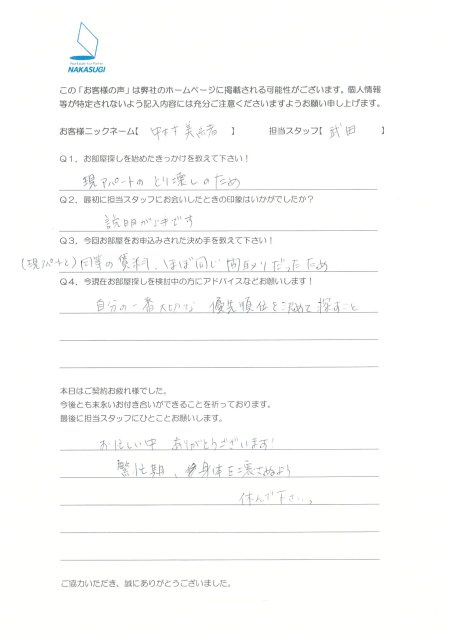 NAKASUGI
この「お客様の声」は弊社のホームページに掲載される可能性がございます。個人情報
等が特定されないよう記入内容には充分ご注意くださいますようお願い申し上げます。
お客様ニックネーム【 中村美 者 】 担当スタッフ【 武田 】
Q1．お部屋探しを始めたきっかけを教えて下さい！
現アパートのとり壊しのため
Q2．最初に担当スタッフにお会いしたときの印象はいかがでしたか？
説明が上手です
Q3．今回お部屋をお申込みされた決め手を教えて下さい！
(現アパートと)同等の賃料、ほぼ同じ間取りだったため
Q4．今現在お部屋探しを検討中の方にアドバイスなどお願いします！
自分の一番大切な 優先順位を決めて探すこと
本日はご契約お疲れ様でした。
今後とも末永いお付き合いができることを祈っております。
最後に担当スタッフにひとことお願いします。
お忙しい中 ありがとうございます
繁忙期、身体を壊さぬよう
休んで下さい。
ご協力いただき、誠にありがとうございました。